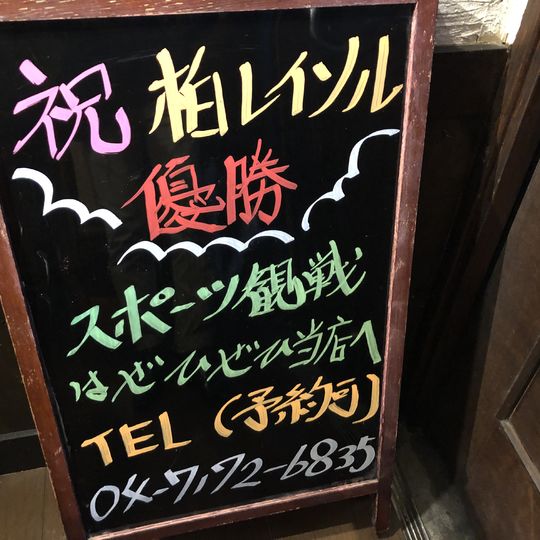 祝 柏レイソル
優勝
スポーツ観戦
はぜひぜひ当店へ
TEL (予約可)
04-7172-6835